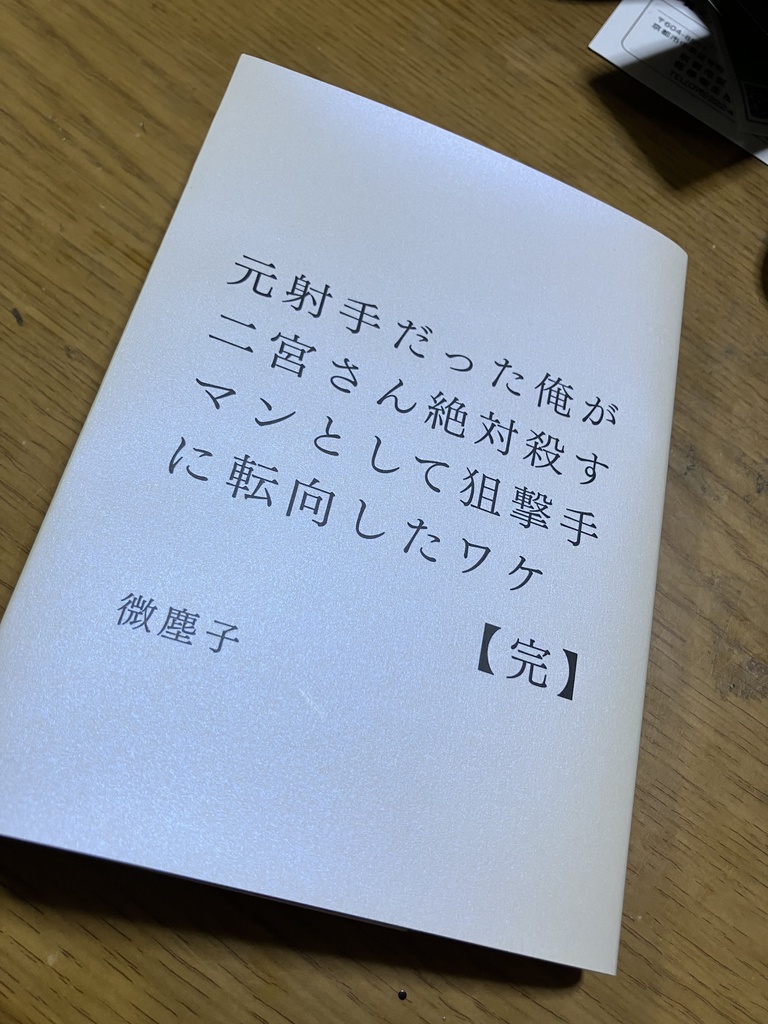 元射手だった俺が
二宮さん絶対殺す
マンとして狙撃手
に転向したワケ
【完】
微塵子
〒604-8
京都市